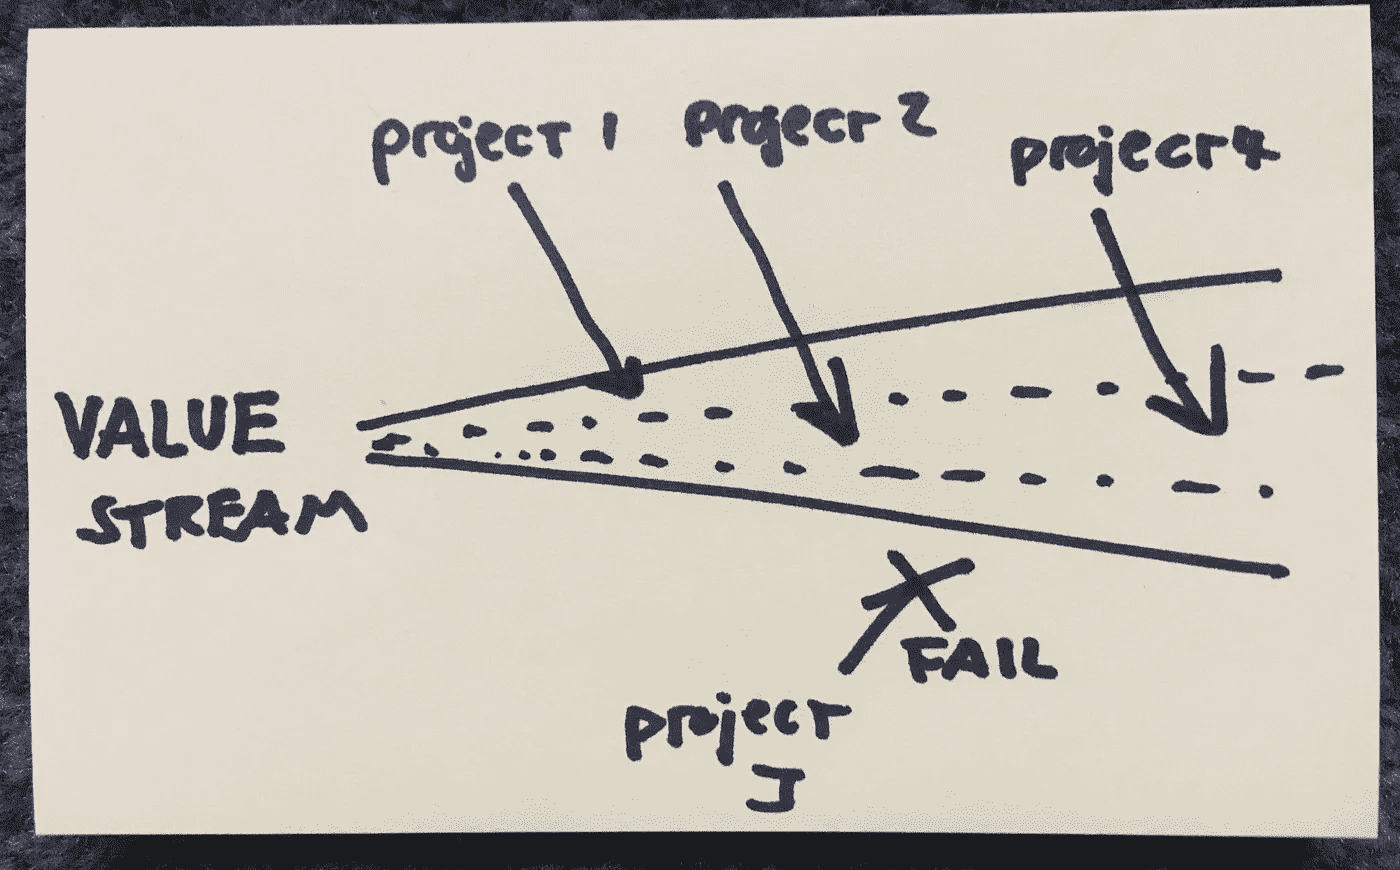 project 1
project 2
project 4
VALUE
STREAM
FAIL
project
3